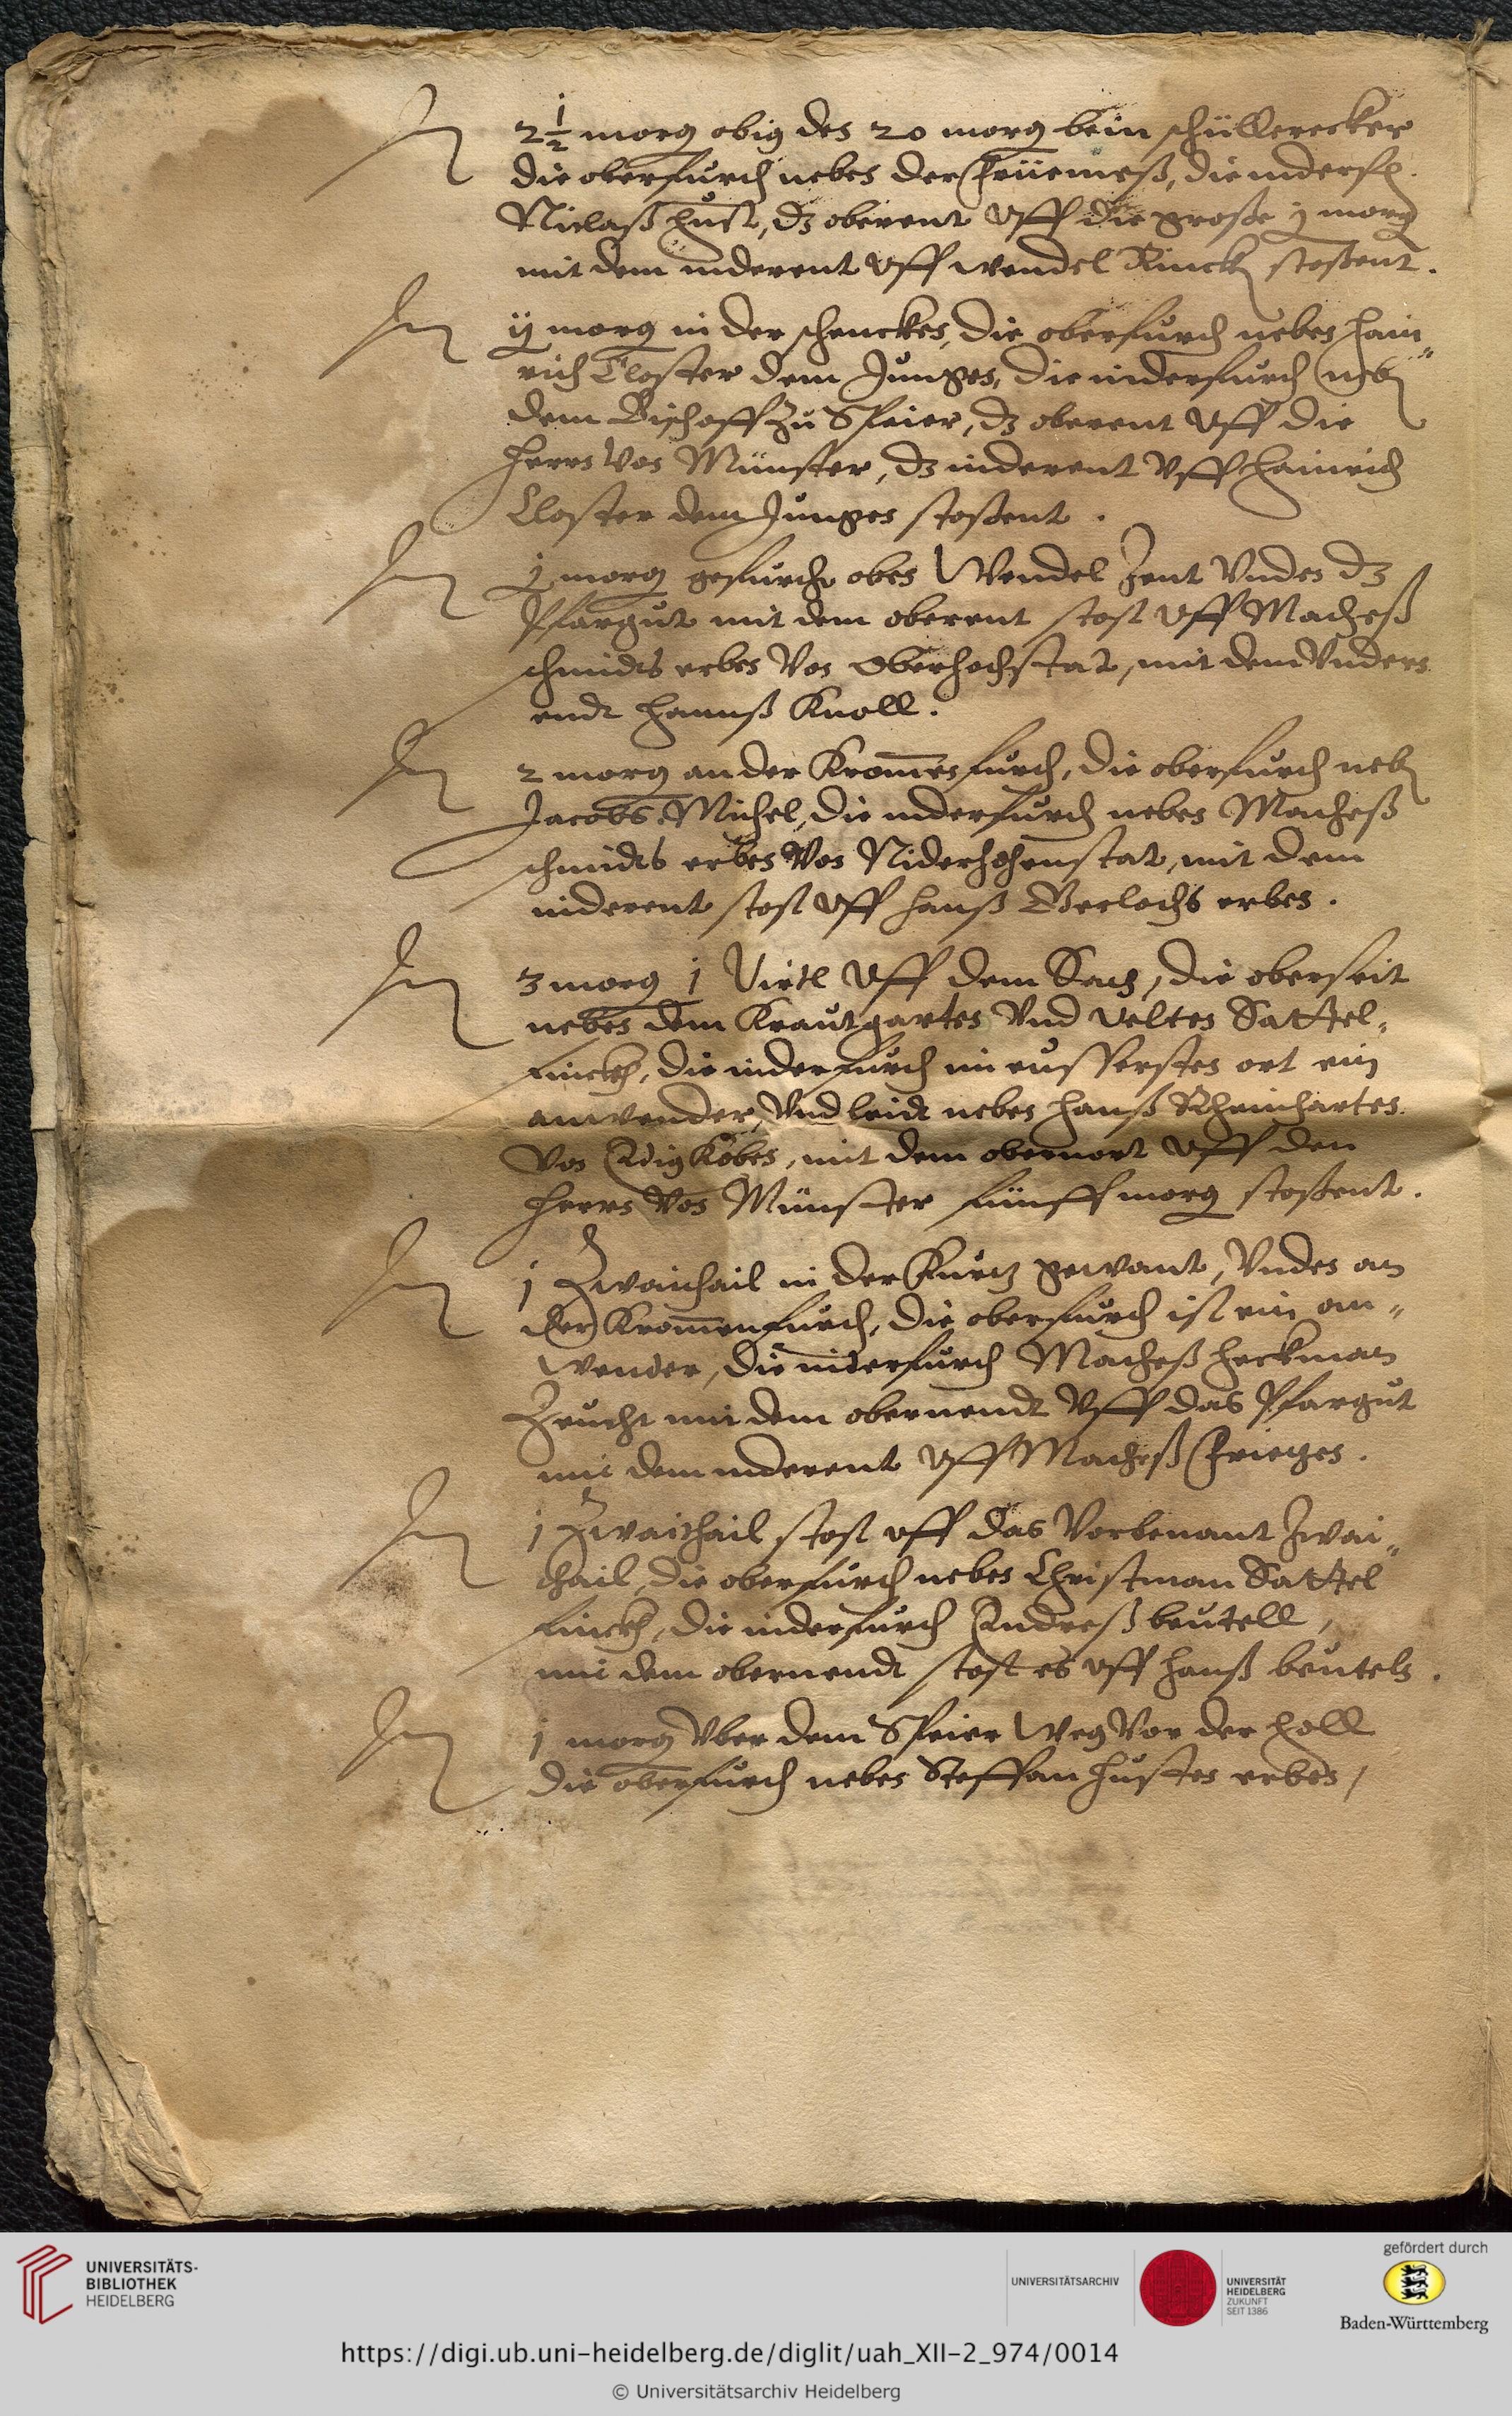 Jtem
2 1/2 morg obig des 20 morg bein schüllerecker
die oberfurch neben der Früemeß, die niderf.
Niclaß Hust, dz oberent vff die große ij morg
mit dem niderent vff Wendel Rincken stoßent.
Jtem
ij morg in der schencken, die oberfurch neben Hain„
rich Closter dem Jungen, die niderfurch neben
dem Bischoff zu Speier, dz oberent vff die
Herrn von Münster, dz niderent vff Hainrich
Closter dem Jungen stoßent.
Jtem
j morg gefurcht oben Wendel Zent vnden dz
Pfargut mit dem oberent stost vff Matheß
schmidts erben von Oberhochstat, mit dem vndern
endt Hannß Knoll.
Jtem
2 morg an der Kromen furch, die oberfurch neben
Jacobs Michel, die niderfurch neben Matheß
schmidts erben von Niderhohenstat, mit dem
niderent stost vff Hanß Gerlachs erben.
Jtem
3 morg 1 virtl vff dem Sand, die oberseit
neben dem Krautgarten vnd Velten Sattel„
fincken, die niderfurch im eussersten ort ein
anwender, vnd leidt neben Hanß Rheinharten
von Edigkoben, mit dem obernort vff den
Herrn von Münster fünff morg stoßent.
Jtem
1 Zwaithail in der Kurtz gewant, vnden an
der Kromenfurch, die oberfurch ist ein an„
wender, die niderfurch Matheß Heckman
Zeucht mit dem obernendt vff das Pfargut
mit dem niderent vff Matheß Friegen.
Jtem
1 Zwaithail stost vff das vorbenant Zwai„
thail, die oberfurch neben Christman Sattel
fincken, die niderfurch Andreß beutell,
mit dem obernendt stost es vff Hanß beuteln.
Jtem
1 morg vber dem Speier Weg vor der Holl
die oberfurch neben Steffan Husten erben,
UNIVERSITÄTS-
BIBLIOTHEK
HEIDELBERG
UNIVERSITÄTSARCHIV
UNIVERSITÄT
HEIDELBERG
ZUKUNFT
SEIT 1386
gefördert durch
Baden-Württemberg
https://digi.ub.uni-heidelberg.de/diglit/uah_XII-2_974/0014
© Universitätsarchiv Heidelberg